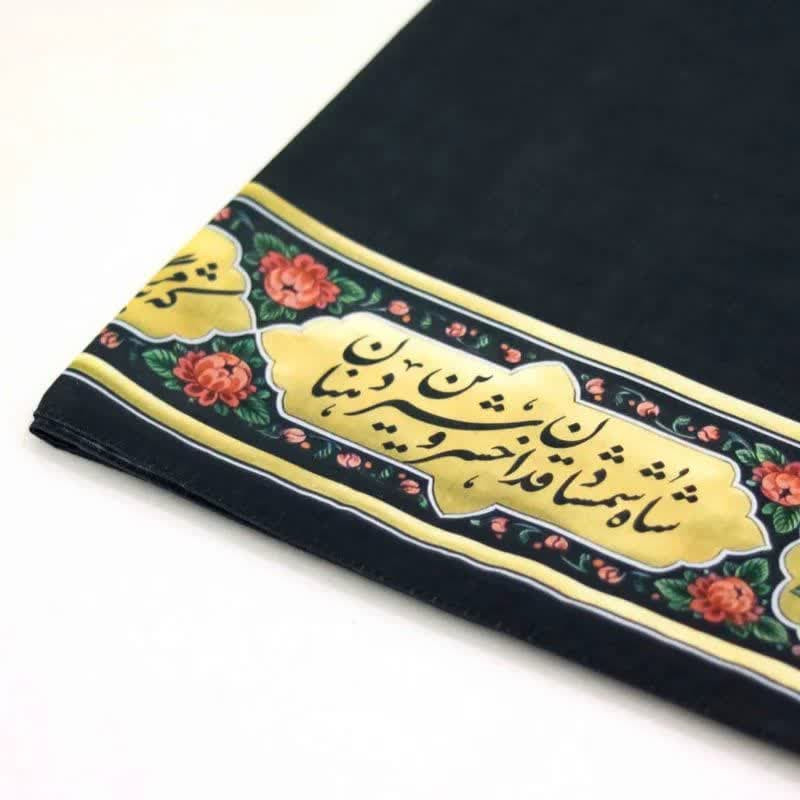 شاه شمشادقدان خسرو شیرین دهنان